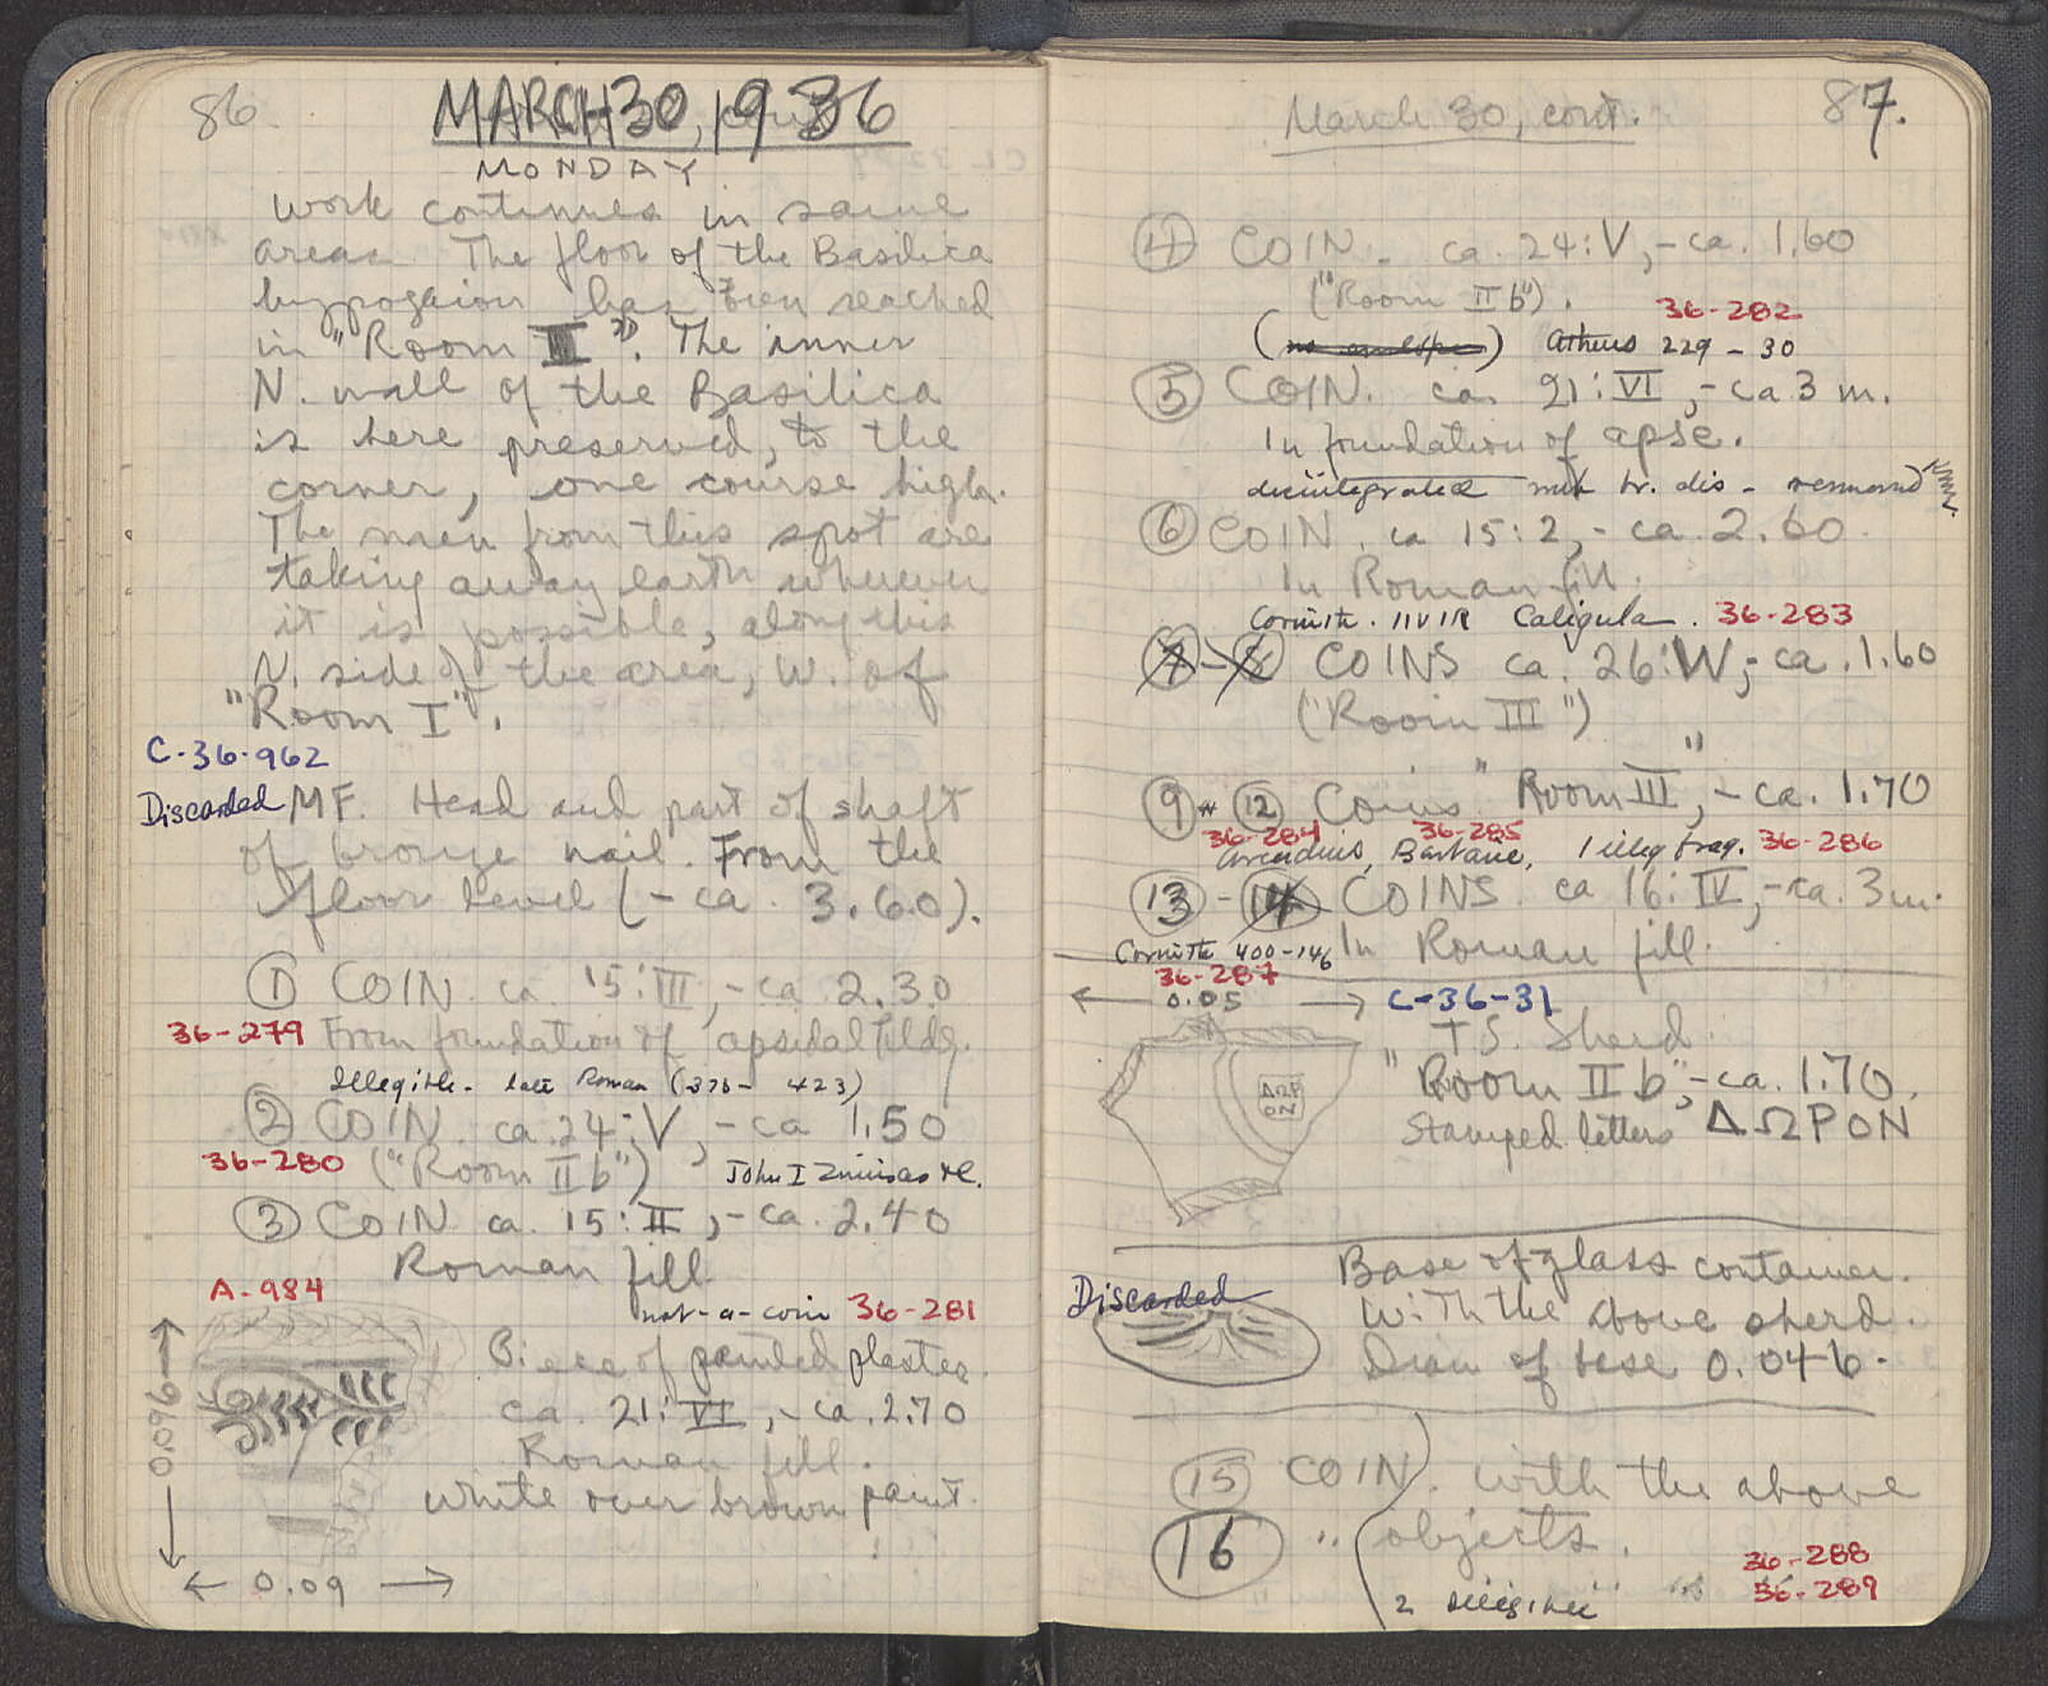 86
MARCH 30, 1936
MONDAY
Work continues in same
areas. The floor of the Basilica
hypogaion has been reached
in "Room III". The inner
N. wall of the Basilica
is here preserved, to the
corner, one course high.
The men from this spot are
taking away earth wherever
it is possible, along this
N. side of the area, W. of
"Room I".
C-36-962
Discarded MF. Head and part of shaft
of bronze nail. From the
floor level (- ca. 3.60).
① COIN. ca. 15:III, - ca 2.30
36-279 From foundation of apsidal bldg.
Illegible - late Roman (375- 423)
② COIN. ca. 24:V, - ca 1.50
36-280 ("Room II b") John I
③ COIN ca. 15:II, - ca. 2.40
Roman fill.
A-984
not-a-coin 36-281
Piece of painted plaster.
ca. 21:VI, - ca. 2.70
Roman fill.
White over brown paint.
0.096
← 0.09 →
March 30, cont. 87.
④ COIN. ca. 24:V, - ca. 1.60
("Room II b"). 36-282
(no envelope) Athens 229-30
⑤ COIN. ca. 21:VI, - ca 3 m.
In foundation of apse.
disintegrated br. dis - removed
⑥ COIN. ca 15:2, - ca. 2.60.
In Roman fill.
Corinth. IIVIR Caligula. 36-283
7-8 COINS ca. 26:W, - ca. 1.60
("Room III")
⑨ - ⑫ Coins "Room III", - ca. 1.70
36-284 36-285
Arcadius, 1 illeg frag. 36-286
⑬ - 14 COINS. ca 16:IV, - ca. 3m.
Corinth 400-146 In Roman fill.
36-287
← 0.05 → C-36-31
T.S. Sherd.
"Room II b", - ca. 1.70.
ΔΩΡ
ΟΝ
Stamped letters ΔΩΡΟΝ
Base of glass container.
Discarded
With the above sherd.
Diam of base 0.046.
⑮ COIN. With the above
⑯ " objects.
36-288
2 illegible
36-289